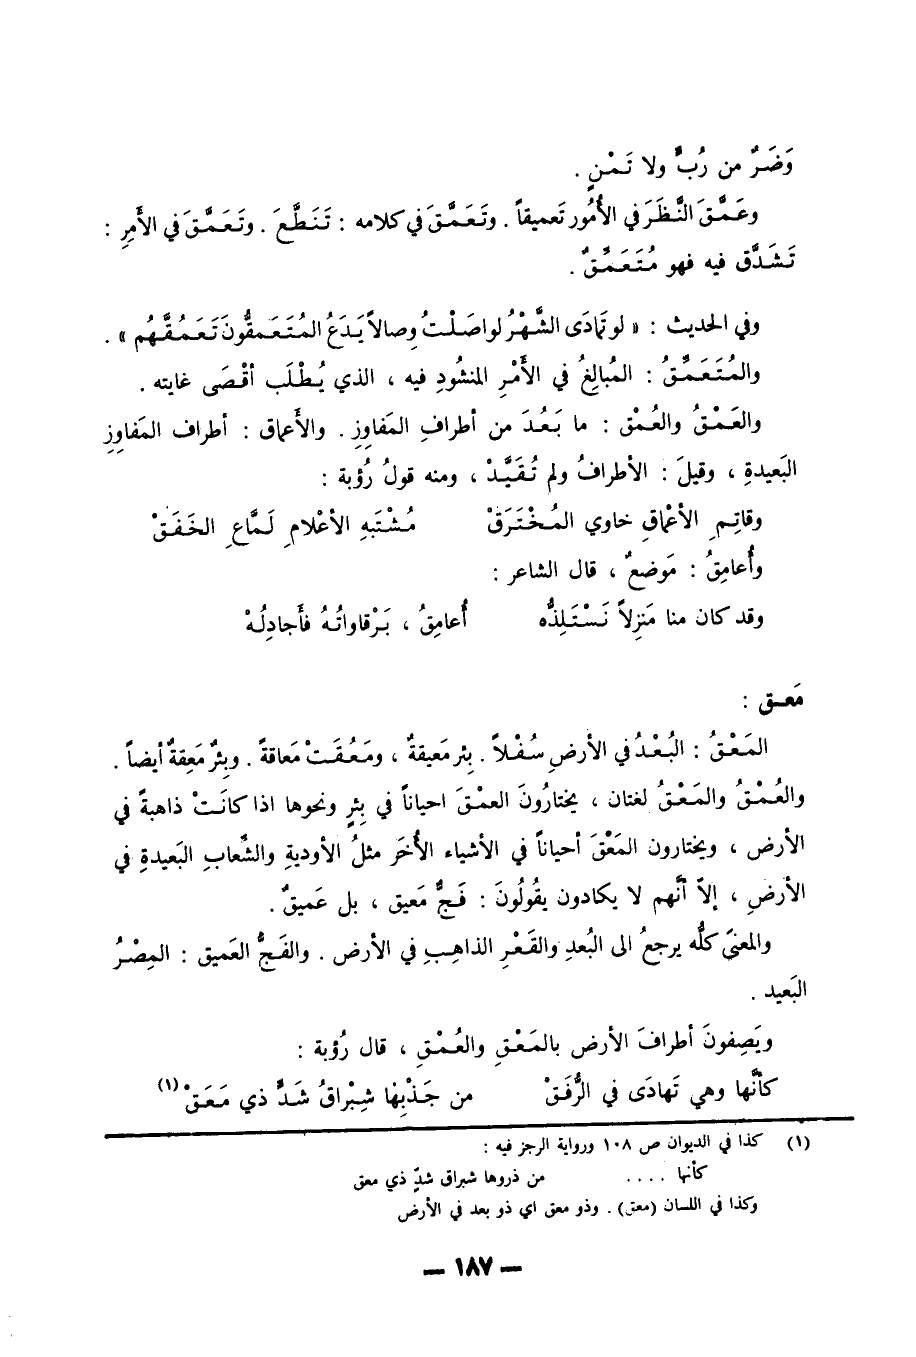 وَضَرٌ من رُبٍّ ولا تَمْنٍ .
وعَمَّقَ النَّظَرَ في الأُمُور تَعميقاً . وتَعَمَّقَ في كلامه : تَنَطَّعَ . وتَعَمَّقَ في الأَمرِ :
تَشَدَّق فيه فهو مُتَعَمِّقٌ .
وفي الحديث : « لو تمَادَى الشَّهْرُ لواصَلْتُ وِصالاً يَدَعُ المُتَعَمِقُّونَ تَعَمُقَّهُم » .
والمُتَعَمِّقُ : المُبالِغُ في الأَمْرِ المنشُودِ فيه ، الذي يُطْلَب أقْصَى غايته .
والعَمْقُ والعُمْق : ما بَعُدَ من أطرافِ المَفاوِزِ . والأَعماق : أطراف المَفاوِزِ
البَعيدةِ ، وقيلَ : الأطرافُ ولم تُقَيَّدْ ، ومنه قولُ رُؤبة :
وقاتِمِ الأعْماقِ خاوي المُخْتَرَقْ مُشْتَبِهِ الأعْلامِ لَمَّاعِ الخَفَقْ
وأُعامِقُ : مَوضعٌ ، قال الشاعر :
وقد كان منا مَنزِلاً نَسْتَلِذُّه أُعامِقُ ، بَرْقاواتُهُ فأَجادِلُهْ
مَعـق :
المَعْقُ : البُعْدُ في الأرضِ سُفْلاً . بِئر مَعيقةٌ ، ومَعُقَتْ مَعاقةً . وبِئرٌ مَعِقةٌ أيضاً .
والعُمْقُ والمَعْقُ لغتان ، يختارُونَ العمْقَ احياناً في بِئرٍ ونحوها اذا كانَتْ ذاهبةً في
الأرض ، ويختارون المَعْقَ أحياناً في الأشياء الأُخَر مثلُ الأوديةِ والشِّعابِ البَعيدةِ في
الأرضِ ، إلاّ أنَّهم لا يكادون يقُولُونَ : فَجٌّ مَعيق ، بل عَميقٌ .
والمعنىَ كلُّه يرجعُ الى البُعدِ والقَعْرِ الذاهِبِ في الأرض . والفَجُّ العَميق : المِصْرُ
البَعيد .
ويَصِفونَ أطرافَ الأرض بالمَعْقِ والعُمْقِ ، قال رُؤبة :
كأنَّها وهي تَهادَى في الرُّفَقْ من جَذْبِها شِبْراقُ شَدٍّ ذي مَعَقْ (١)
(١) كذا في الديوان ص ١٠٨ ورواية الرجز فيه :
كأنها .... من ذروها شبراق شدٍّ ذي معق
وكذا في اللسان (معق) . وذو معق اي ذو بعد في الأرض
— ١٨٧ —